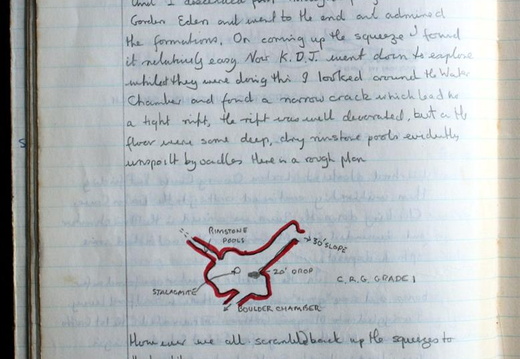 and I descended
Garden Eden and went to the end and admired
the formations. On coming up the squeeze I found
it relatively easy Now K.D.J. went down to explore
whilst they were doing this I looked around the Water
Chamber and found a narrow crack which lead to
a tight rift, the rift was well decorated, but on the
floor were some deep, dry rimstone pools evidently
unspoilt by vandles Here is a rough plan
RIMSTONE
POOLS
30' SLOPE
20' DROP
C.R.G. GRADE 1
STALAGMITE
BOULDER CHAMBER
However we all scrambled back up the squeezes to